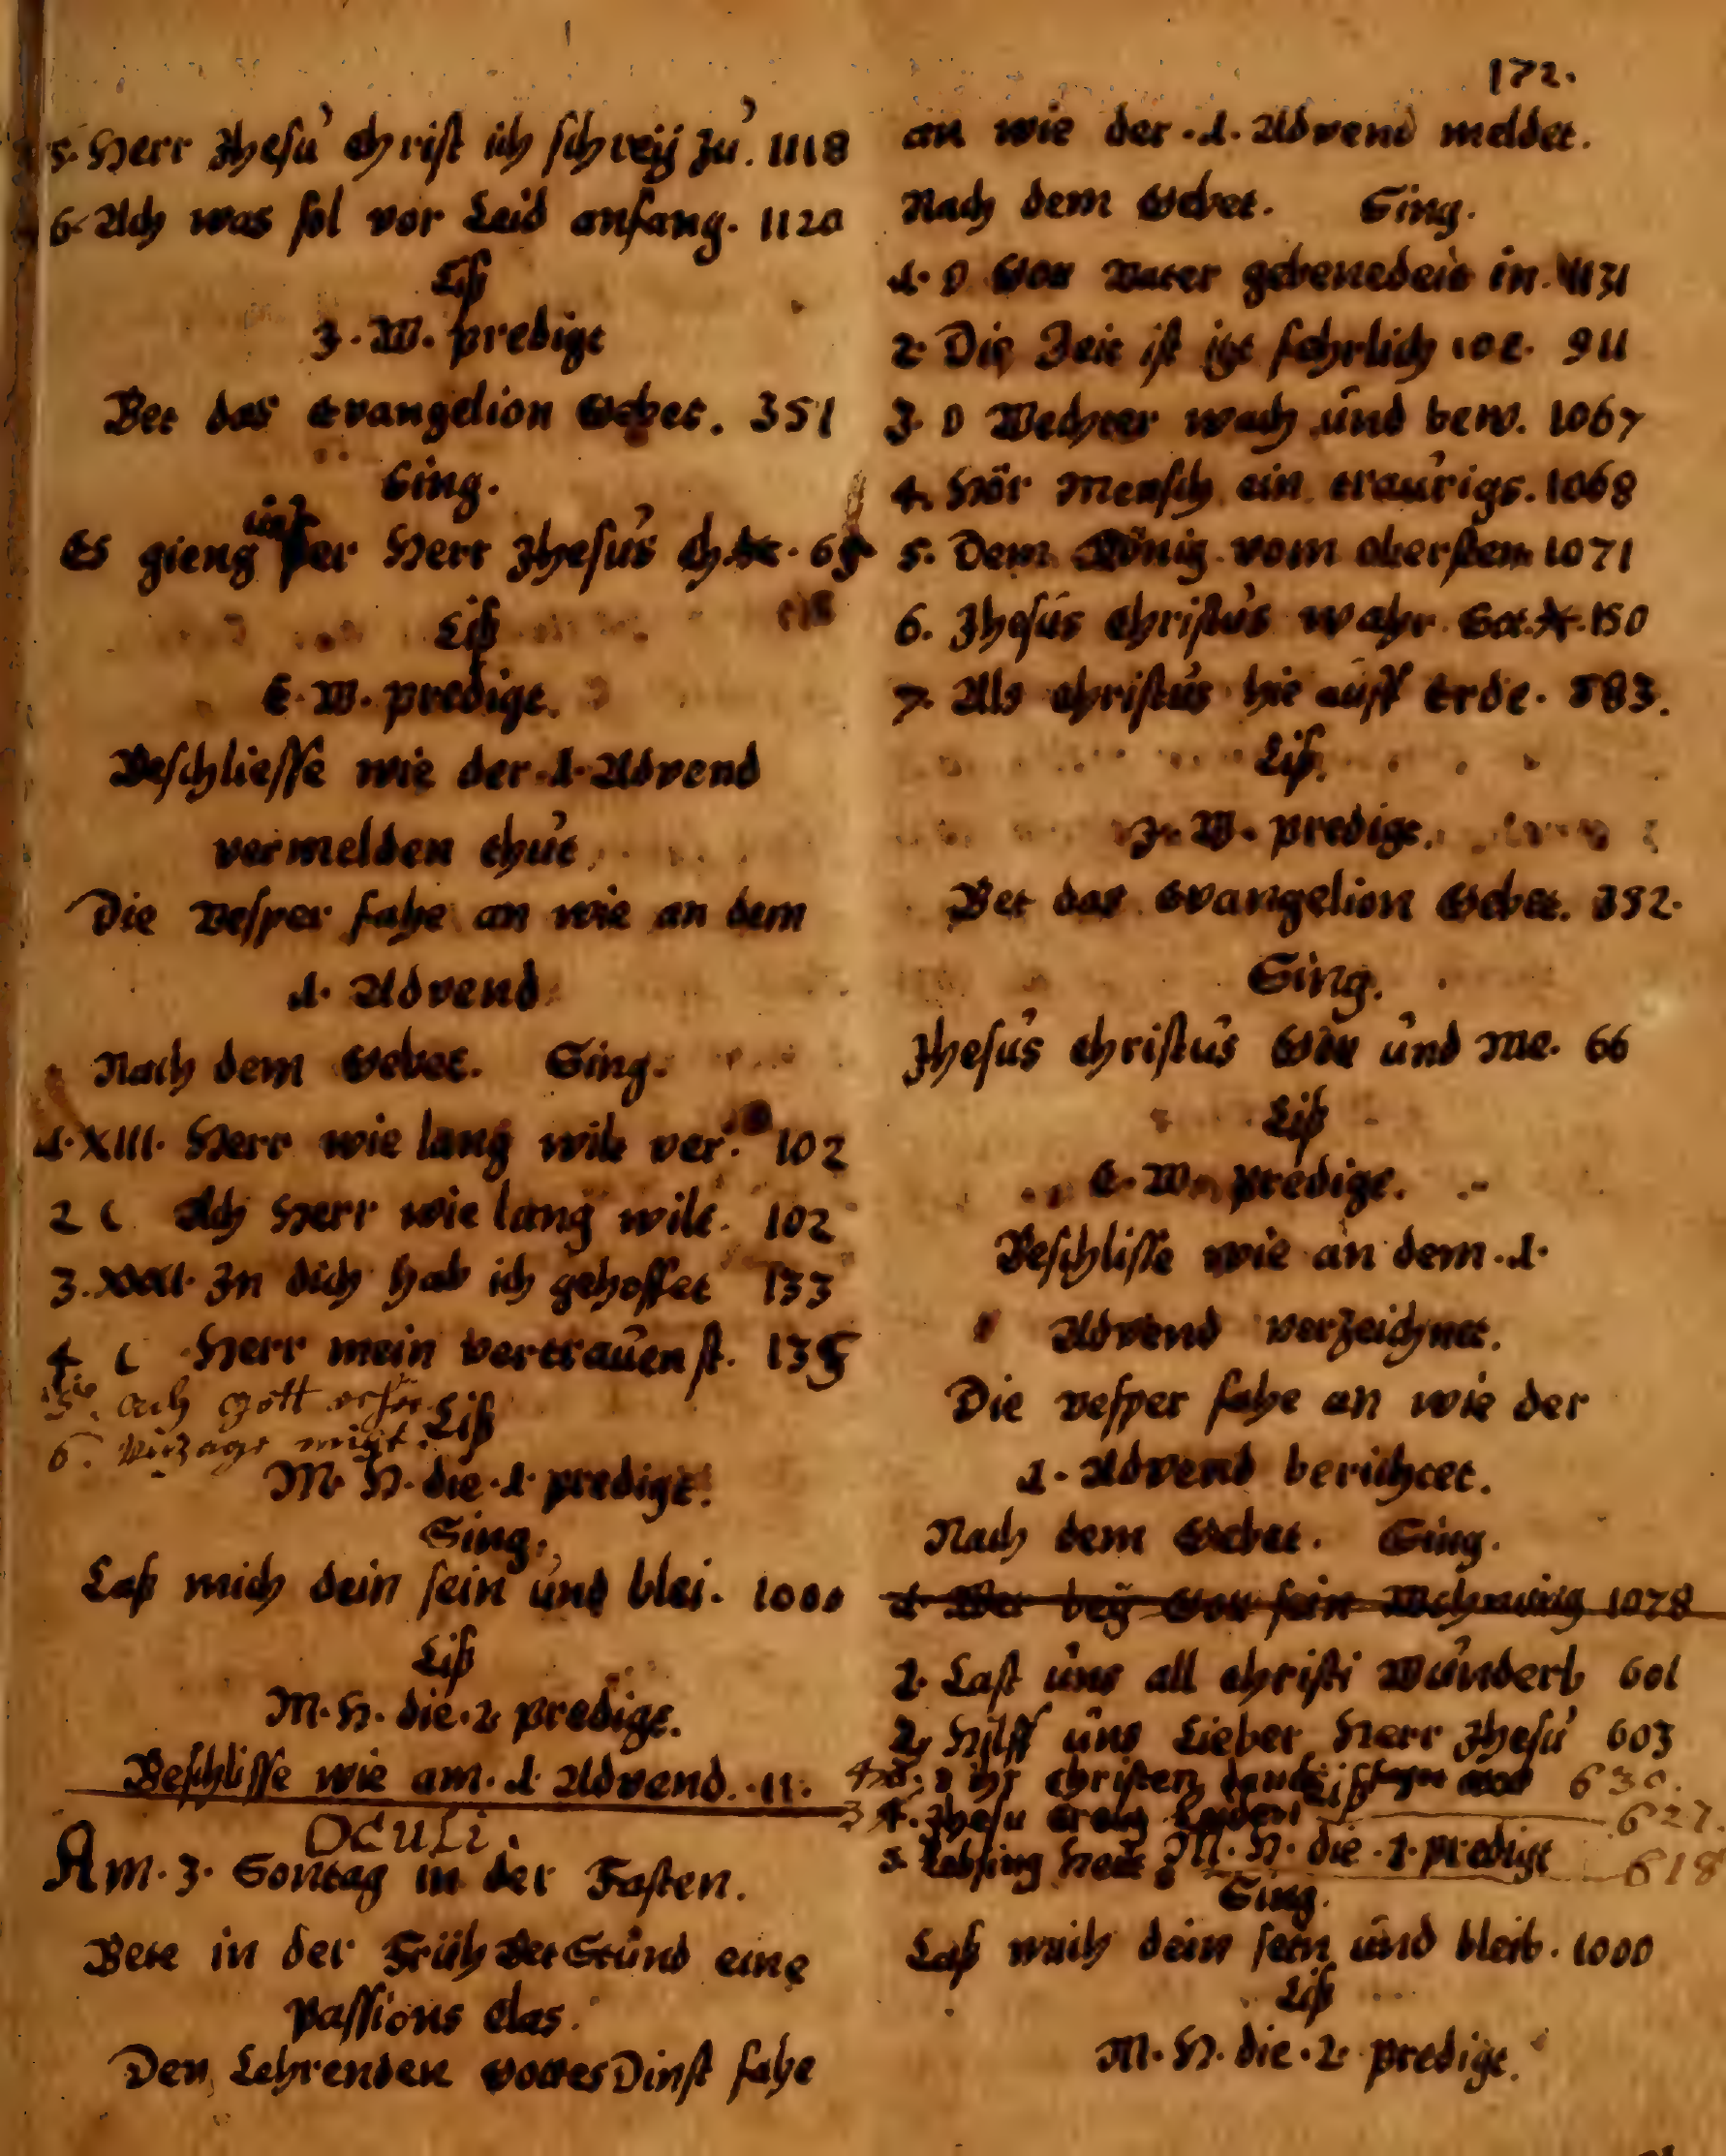 5. Herr Jhesu Christ ich schreij zu. 1118
6. Ach was sol vor Leid anfang. 1120
Liß
J. W. predigt
Bet das Evangelion Gebet. 351
Sing.
Es gieng unser Herr Jhesus Ch. 65
Liß
E. W. predigt.
Beschliesse wie der .1. Advend
vermelden thut
Die Vesper fahe an wie an dem
.1. Advend
Nach dem Gebet. Sing.
1. XIII. Herr wie lang wilt ver. 102
2 C Ach Herr wie lang wilt. 102
3. XXXI. In dich hab ich gehoffet 133
4 C Herr mein Vertrauen st. 135
5. ach gott
6. verzage nicht.
Liß
M. H. die .1. predigt.
Sing.
Laß mich dein sein und blei. 1000
Liß
M. H. die .2. predigt.
Beschlisse wie am .1. Advend. 11.
OCULI.
Am .3. Sontag in der Fasten.
Bete in der Früh BetStund eine
Passions Clas.
Den Lehrenden GottesDinst fahe
172.
an wie der .1. Advend meldet.
Nach dem Gebet. Sing.
1. O Gott Vater gebenedeit in. 1131
2. Die Zeit ist itzt fehrlich 911
3. O Wechter wach und bew. 1067
4. Hör Mensch ein traurigs. 1068
5. Dem König vom obersten 1071
6. Jhesus Christus wahr Got. 150
7. Als Christus hie auff Erde. 583.
Liß.
J. W. predigt.
Bet das Evangelion Gebet. 352.
Sing.
Jhesus Christus Gott und Me. 66
Liß
E. W. predigt.
Beschlisse wie an dem .1.
Advend verzeichnet.
Die Vesper fahe an wie der
1. Advend berichtet.
Nach dem Gebet. Sing.
1. Wer beÿ Gott sein Wohnung 1078
1. Last uns all Christi Wunderb 601
2. Hilff uns Lieber Herr Jhesu 603
O ihr Christen 630.
4. Jhesu Creutz Leiden 627.
5. Lobsing heut 618
Liß
M. H. die .1. predigt
Sing.
Laß mich dein sein und bleib. 1000
Liß
M. H. die .2. predigt.